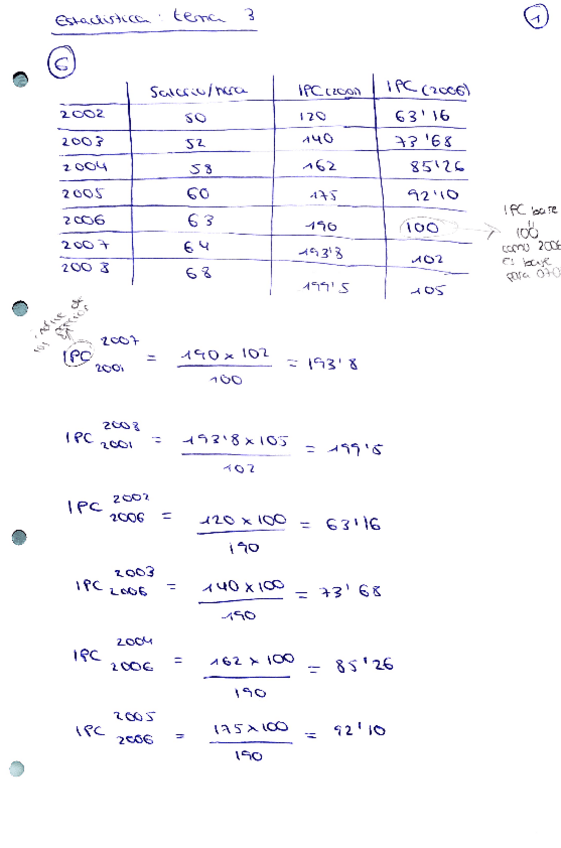 Estadística: tema 3
1
6
Salario/hora IPC (2001) IPC (2006)
2002 50 120 63'16
2003 52 140 73'68
2004 58 162 85'26
2005 60 175 92'10
2006 63 190 100
2007 64 193'8 102
2008 68 199'5 105
IPC base
100
como 2006
es base
para 070
IPC 2007 2001 = 190 x 102 / 100 = 193'8
IPC 2008 2001 = 193'8 x 105 / 102 = 199'5
IPC 2002 2006 = 120 x 100 / 190 = 63'16
IPC 2003 2006 = 140 x 100 / 190 = 73'68
IPC 2004 2006 = 162 x 100 / 190 = 85'26
IPC 2005 2006 = 175 x 100 / 190 = 92'10